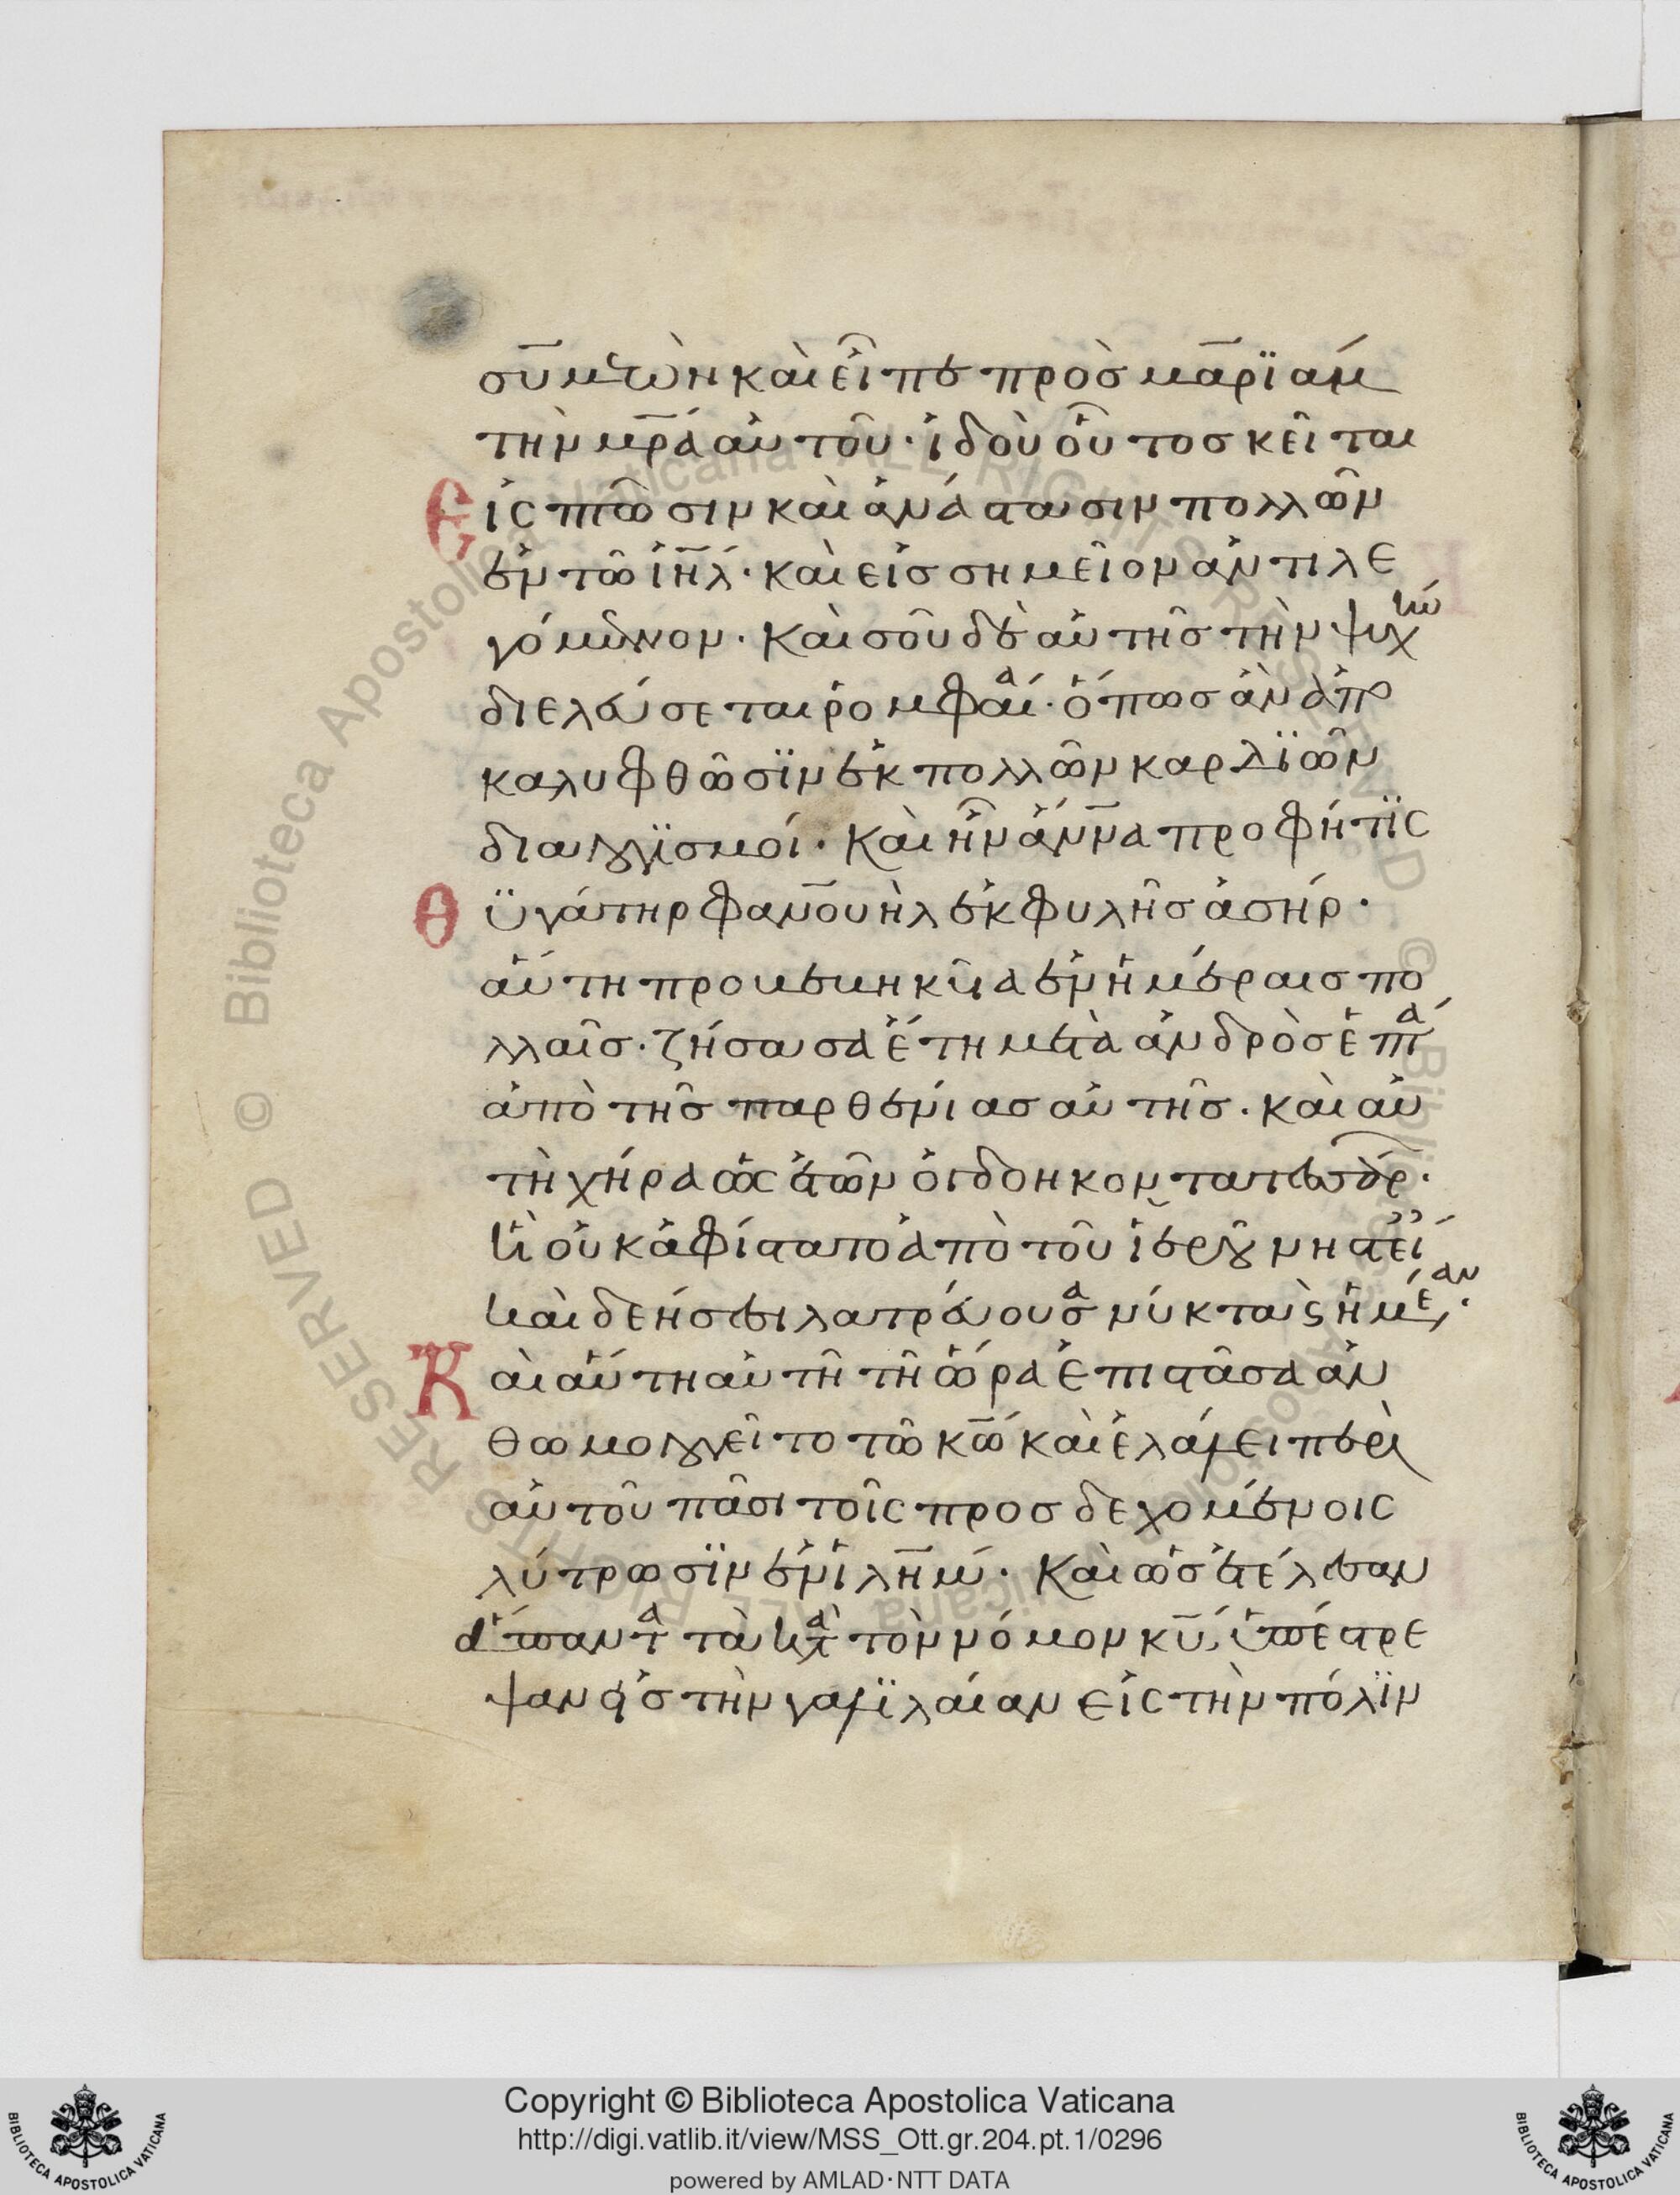 συμεὼν καὶ εἶπε πρὸς μαρϊὰμ
τὴν μρ̅α αὐτοῦ· ἰδοὺ οὗτος κεῖται
εἰς πτῶσιν καὶ ἀνάστασιν πολλῶν
ἐν τῶ ιη̅λ· καὶ εἰς σημεῖον ἀντιλε
γόμενον· καὶ σοῦ δὲ αὐτῆς τὴν ψυχὴν
διελεύσεται ῥομφαία· ὅπως ἂν ἀπο
καλυφθῶσϊν ἐκ πολλῶν καρδϊῶν
διαλογϊσμοί· Καὶ ἦν ἄννα προφῆτϊς
θϋγάτηρ φανουὴλ ἐκ φυλῆς ἀσήρ·
αὕτη προβεβηκυῖα ἐν ἡμέραις πο
λλαῖς· ζήσασα ἔτη μετὰ ἀνδρὸς ἑπτά
ἀπὸ τῆς παρθενίας αὐτῆς· καὶ αὐ
τὴ χήρα ὡς ἐτῶν ὀγδοηκοντατεσσάρ·
ἣ οὐκ ἀφίστατο ἀπὸ τοῦ ἱεροῦ νηστεί
καὶ δεήσεσι λατρεύουσα νύκτα κς ἡμέραν·
Καὶ αὕτη αὐτῆ τῆ ὥρα ἐπιστᾶσα ἀν
θωμολογεῖτο τῶ κω̅ καὶ ἐλάλει περὶ
αὐτοῦ πᾶσι τοῖς προσδεχομένοις
λύτρωσϊν ἐν ιλη̅μ· Καὶ ὡς ἐτέλεσαν
ἅπαντα τὰ κατὰ τὸν νόμον κυ̅, ὑπέστρε
ψαν εἰς τὴν γαλϊλαίαν εἰς τὴν πόλϊν
Copyright © Biblioteca Apostolica Vaticana
http://digi.vatlib.it/view/MSS_Ott.gr.204.pt.1/0296
powered by AMLAD·NTT DATA
BIBLIOTECA APOSTOLICA VATICANA
BIBLIOTECA APOSTOLICA VATICANA